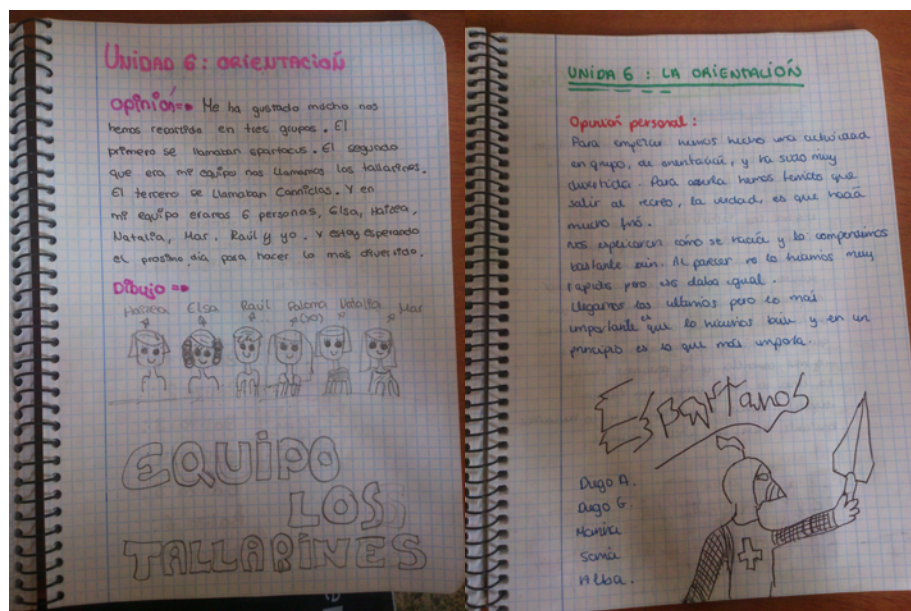 UNIDAD 6: ORIENTACIÓN
Opinión=> Me ha gustado mucho nos
hemos repartido en tres grupos. El
primero se llamaban spartacus. El segundo
que era mi equipo nos llamamos los tallarines.
El tercero se llamaban Canniclas. Y en
mi equipo eramos 6 personas, Elsa, Haizea,
Natalia, Mar, Raúl y yo. Y estoy esperando
el prosimo día para hacer lo mas divertido.
Dibujo =>
Haizea Elsa Raúl Paloma Natalia Mar
(yo)
EQUIPO
LOS
TALLARINES
UNIDA 6 : LA ORIENTACIÓN
Opinión personal:
Para empezar hemos hecho una actividad
en grupo, de orientación, y ha sido muy
divertida. Para hemos tenido que
salir al recreo, la verdad, es que hacía
mucho frió.
Nos explicaron cómo se hacía y lo comprendimos
bastante bien. Al parecer no lo hicimos muy
rapidos pero nos daba igual.
Llegamos los ultimos pero lo más
importante es que lo hicimos bien y en un
principio es lo que más importa.
Espartanos
Diego A.
Diego G.
Sonia
Alba.